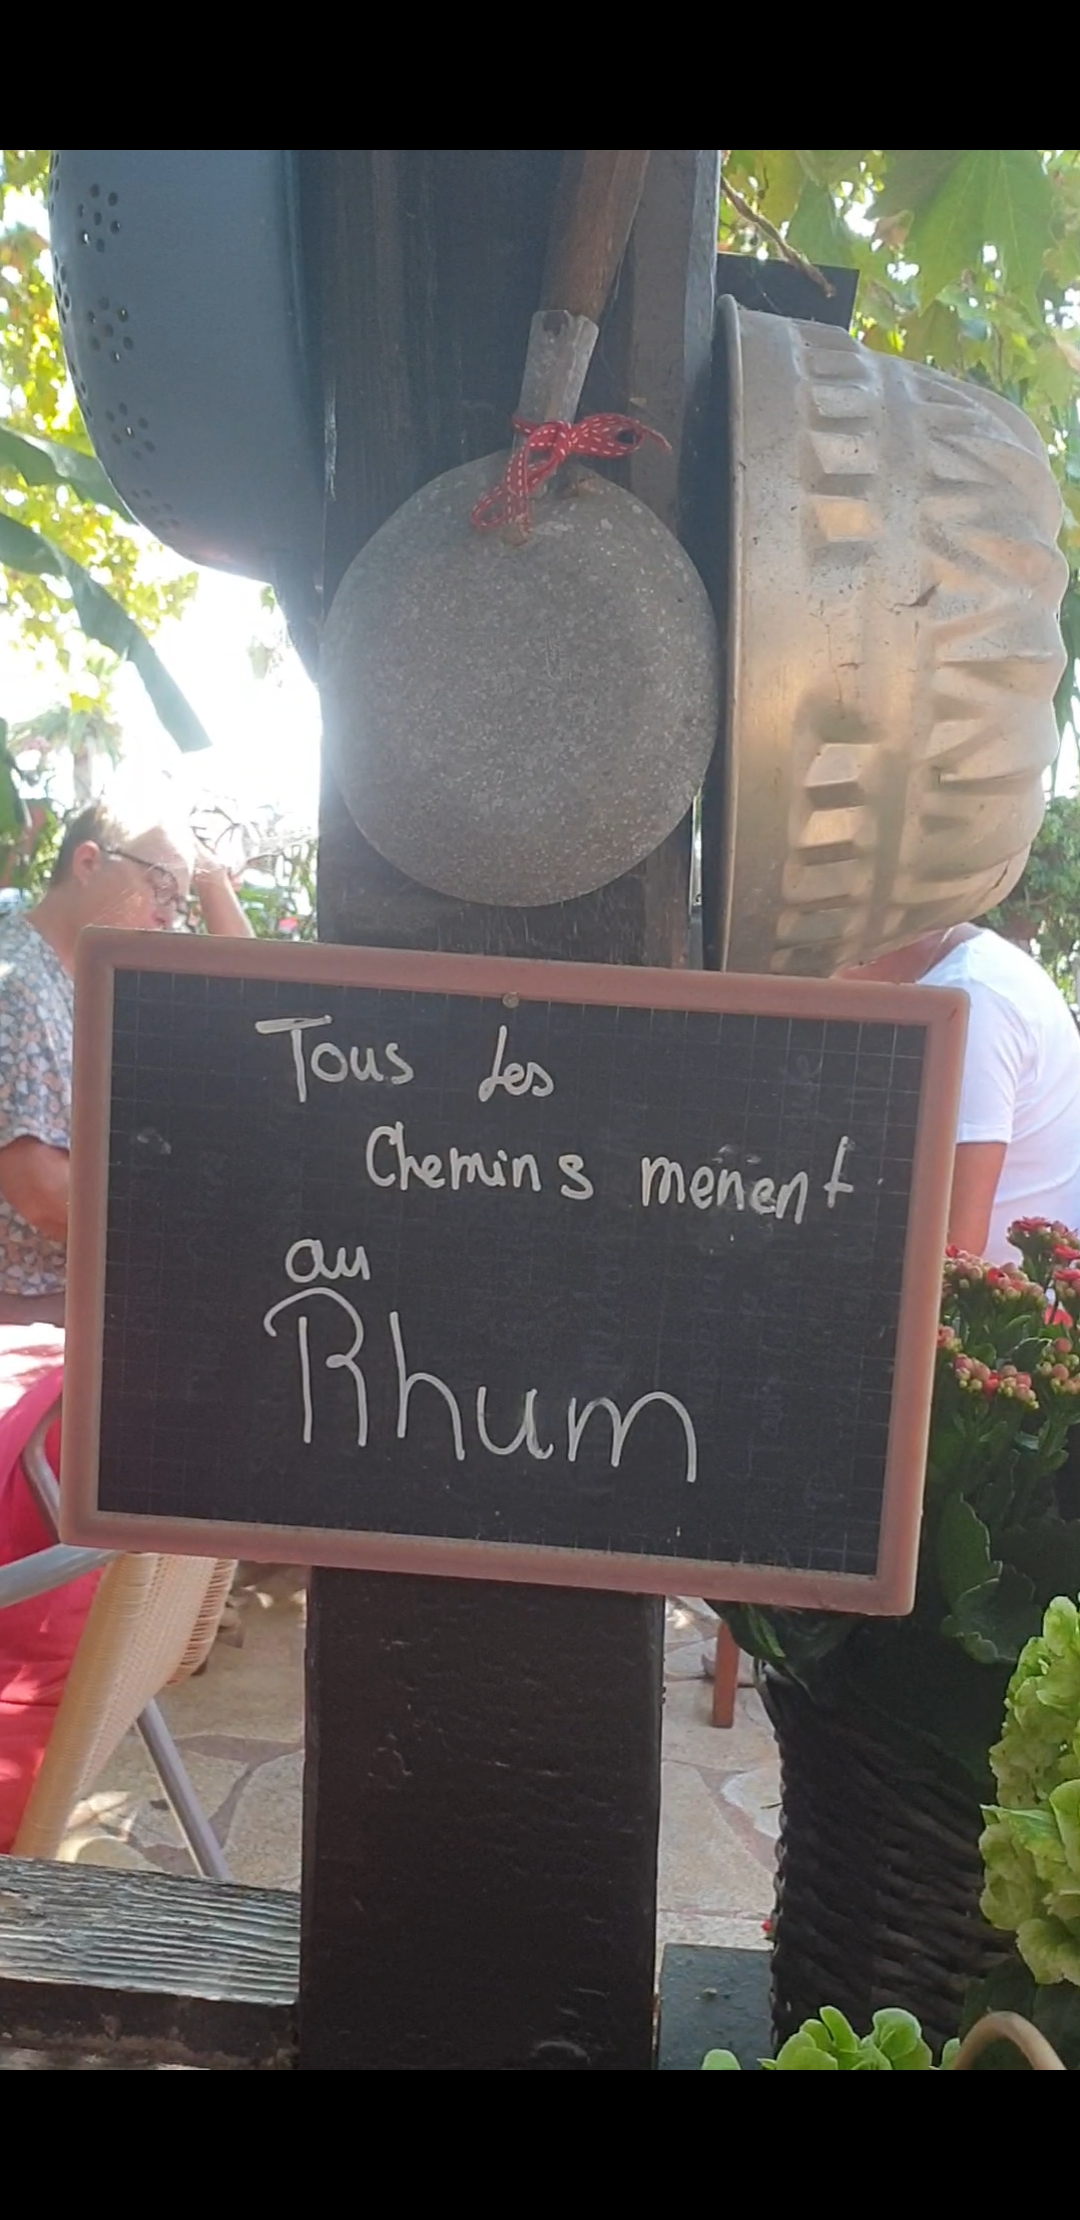 Tous les
Chemins menent
au
Rhum